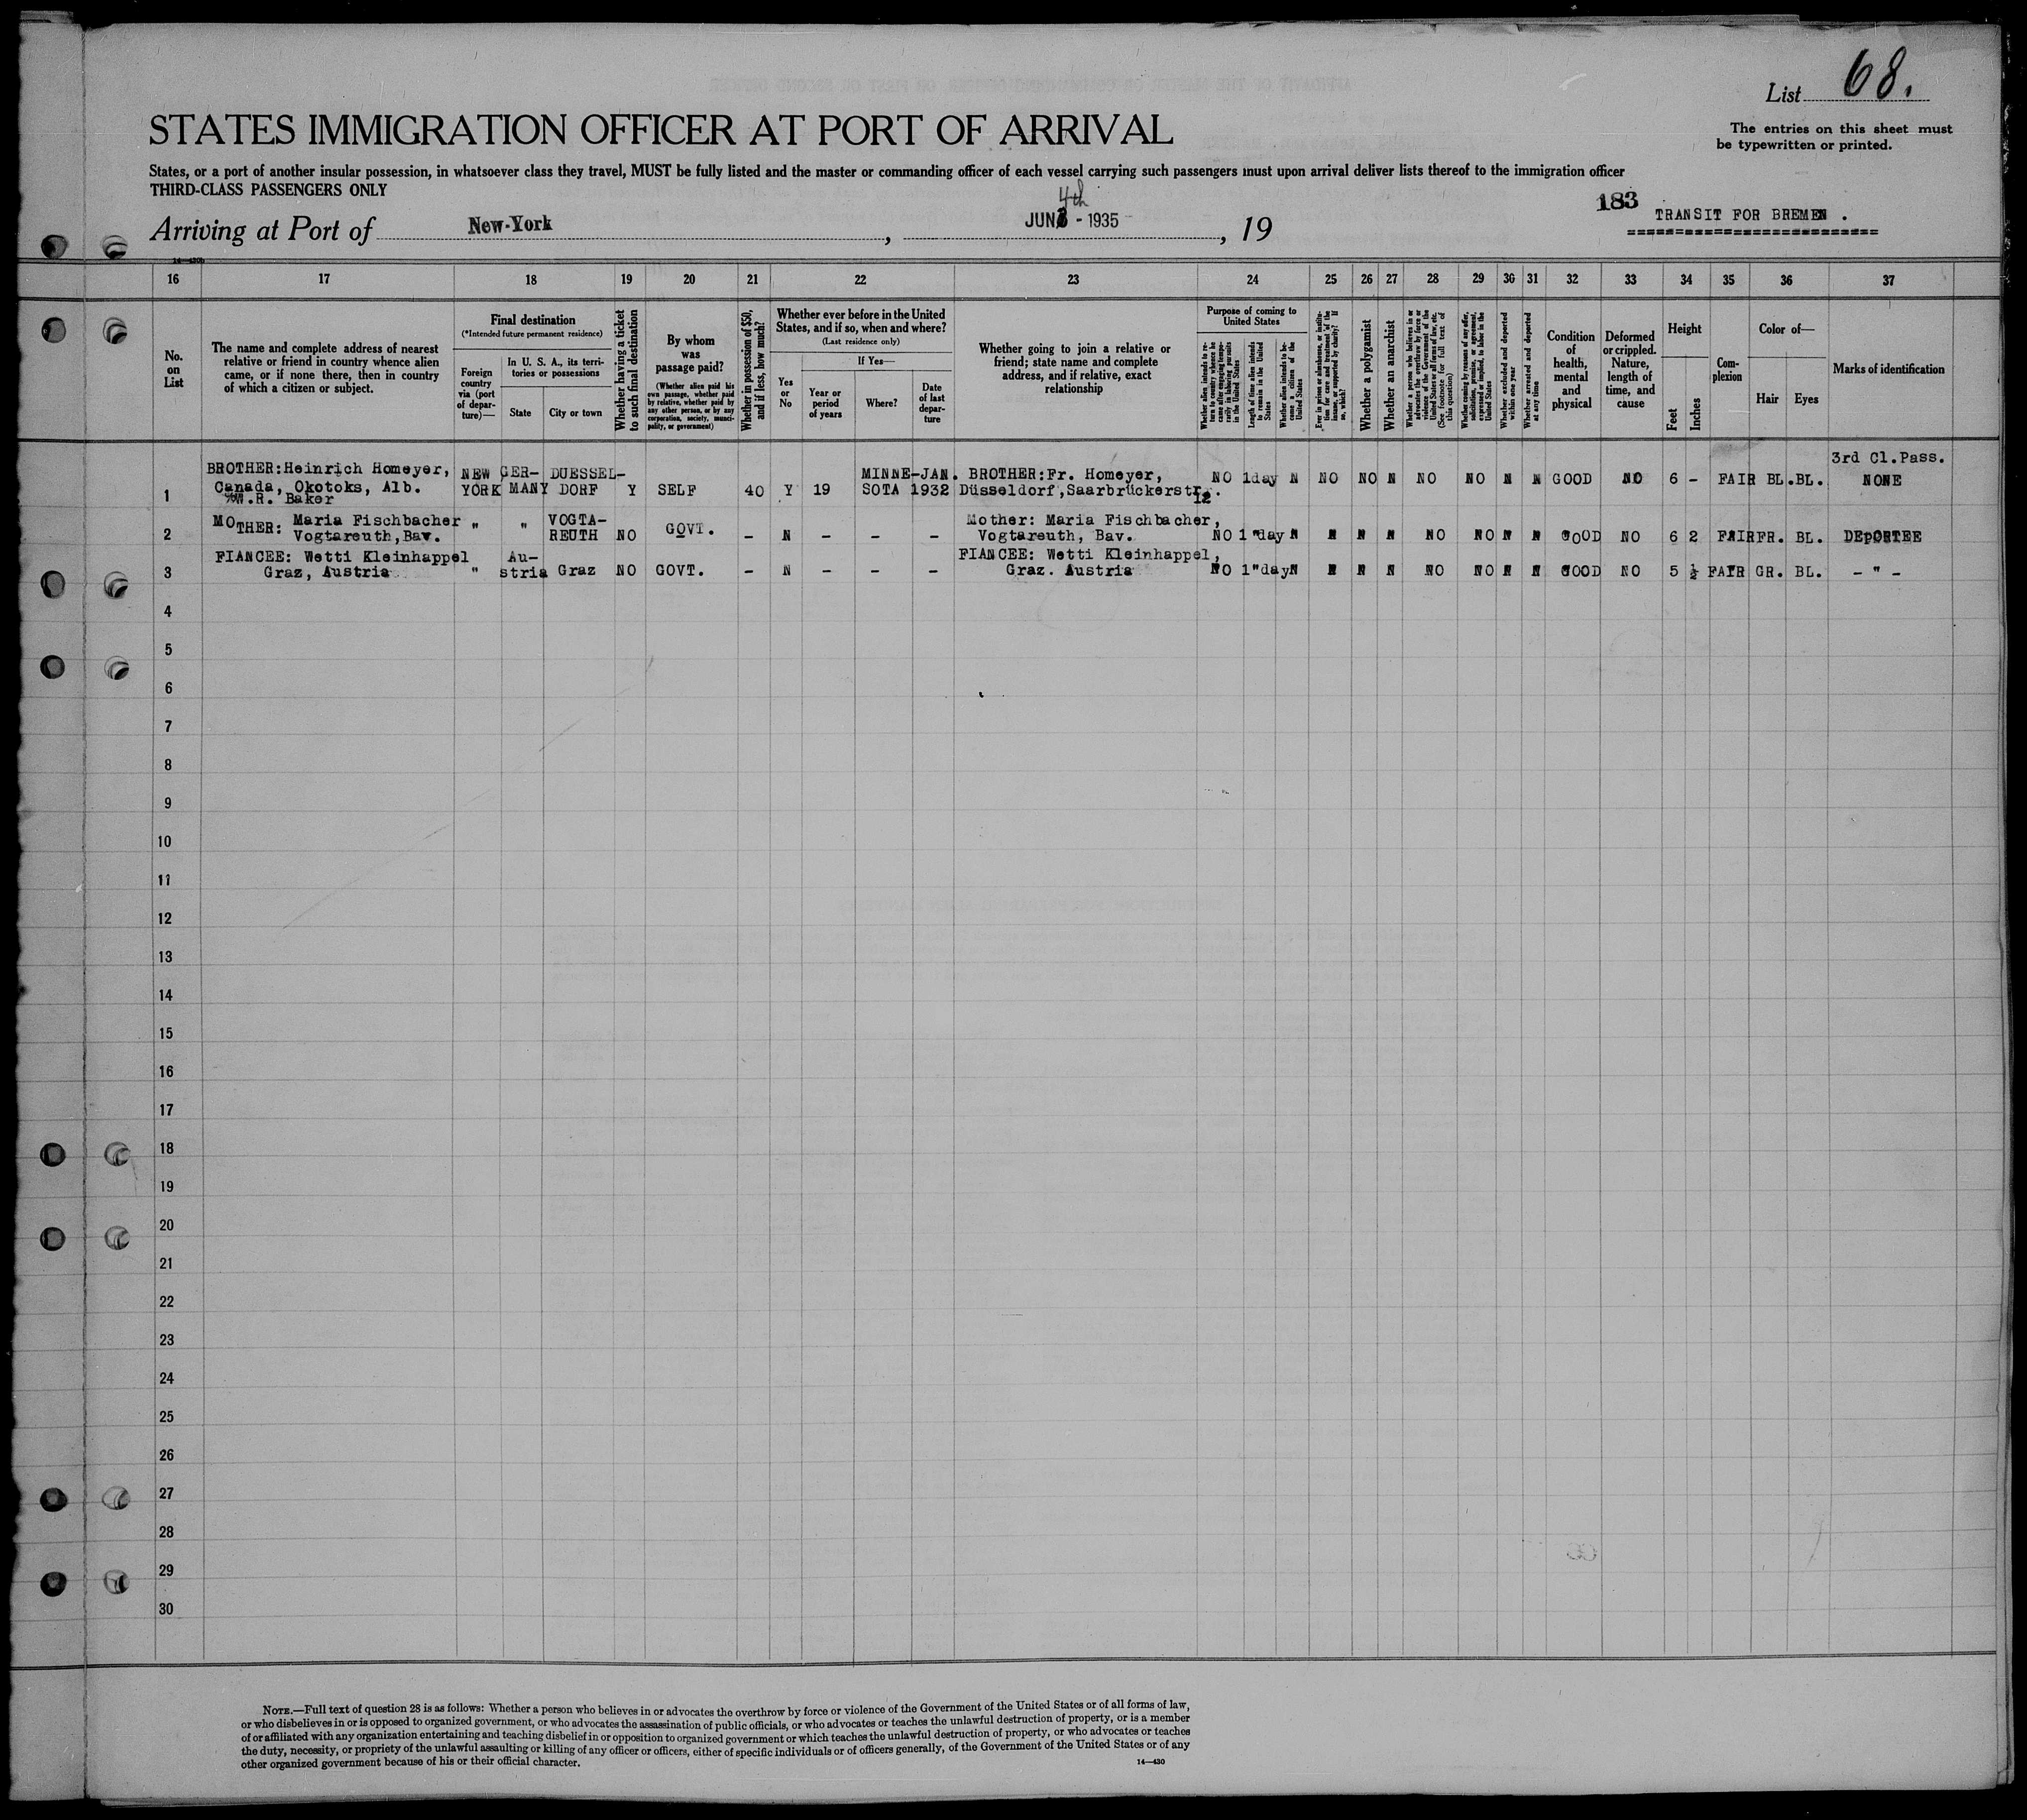 List 68.
The entries on this sheet must
be typewritten or printed.
STATES IMMIGRATION OFFICER AT PORT OF ARRIVAL
States, or a port of another insular possession, in whatsoever class they travel, MUST be fully listed and the master or commanding officer of each vessel carrying such passengers must upon arrival deliver lists thereof to the immigration officer
THIRD-CLASS PASSENGERS ONLY
4th
183 TRANSIT FOR BREMEN .
Arriving at Port of New-York , JUN - 1935 , 19
16 17 18 19 20 21 22 23 24 25 26 27 28 29 30 31 32 33 34 35 36 37
No. on List
The name and complete address of nearest
relative or friend in country whence alien
came, or if none there, then in country
of which a citizen or subject.
Final destination
(*Intended future permanent residence)
Foreign country via (port of departure)—
In U. S. A., its territories or possessions
State
City or town
Whether having a ticket to such final destination
By whom was passage paid?
(Whether alien paid his own passage, whether paid by relative, whether paid by any other person, or by any corporation, society, municipality, or government)
Whether in possession of $50, and if less, how much?
Whether ever before in the United States, and if so, when and where?
(Last residence only)
Yes or No
If Yes—
Year or period of years
Where?
Date of last departure
Whether going to join a relative or
friend; state name and complete
address, and if relative, exact
relationship
Purpose of coming to United States
Whether alien intends to return to country whence he came after engaging temporarily in laboring pursuits in the United States
Length of time alien intends to remain in the United States
Whether alien intends to become a citizen of the United States
Ever in prison or almshouse, or institution for care and treatment of the insane, or supported by charity? If so, which?
Whether a polygamist
Whether an anarchist
Whether a person who believes in or advocates the overthrow by force or violence of the Government of the United States or all forms of law, etc. (See footnote for full text of this question)
Whether coming by reasons of any offer, solicitation, promise, or agreement, expressed or implied, to labor in the United States
Whether excluded and deported within one year
Whether arrested and deported at any time
Condition of health, mental and physical
Deformed or crippled. Nature, length of time, and cause
Height
Feet
Inches
Complexion
Color of—
Hair
Eyes
Marks of identification
3rd Cl.Pass.
BROTHER:Heinrich Homeyer, NEW GER- DUESSEL- MINNE-JAN. BROTHER:Fr. Homeyer,
1 Canada, Okotoks, Alb. YORK MANY DORF Y SELF 40 Y 19 SOTA 1932 Düsseldorf,Saarbrückerstr. NO 1day N NO NO N NO NO N N GOOD NO 6 - FAIR BL.BL. NONE
W.R. Baker 12
MOTHER: Maria Fischbacher " " VOGTA- Mother: Maria Fischbacher,
2 Vogtareuth,Bav. REUTH NO GOVT. - N - - - Vogtareuth, Bav. NO 1"day N N N N NO NO N N GOOD NO 6 2 FAIR FR. BL. DEPORTEE
FIANCEE: Wetti Kleinhappel Au- FIANCEE: Wetti Kleinhappel,
3 Graz, Austria " stria Graz NO GOVT. - N - - - Graz. Austria NO 1"day N N N N NO NO N N GOOD NO 5 ½ FAIR GR. BL. - " -
4
5
6
7
8
9
10
11
12
13
14
15
16
17
18
19
20
21
22
23
24
25
26
27
28
29
30
NOTE.—Full text of question 28 is as follows: Whether a person who believes in or advocates the overthrow by force or violence of the Government of the United States or of all forms of law,
or who disbelieves in or is opposed to organized government, or who advocates the assassination of public officials, or who advocates or teaches the unlawful destruction of property, or is a member
of or affiliated with any organization entertaining and teaching disbelief in or opposition to organized government or which teaches the unlawful destruction of property, or who advocates or teaches
the duty, necessity, or propriety of the unlawful assaulting or killing of any officer or officers, either of specific individuals or of officers generally, of the Government of the United States or of any
other organized government because of his or their official character.
14—430